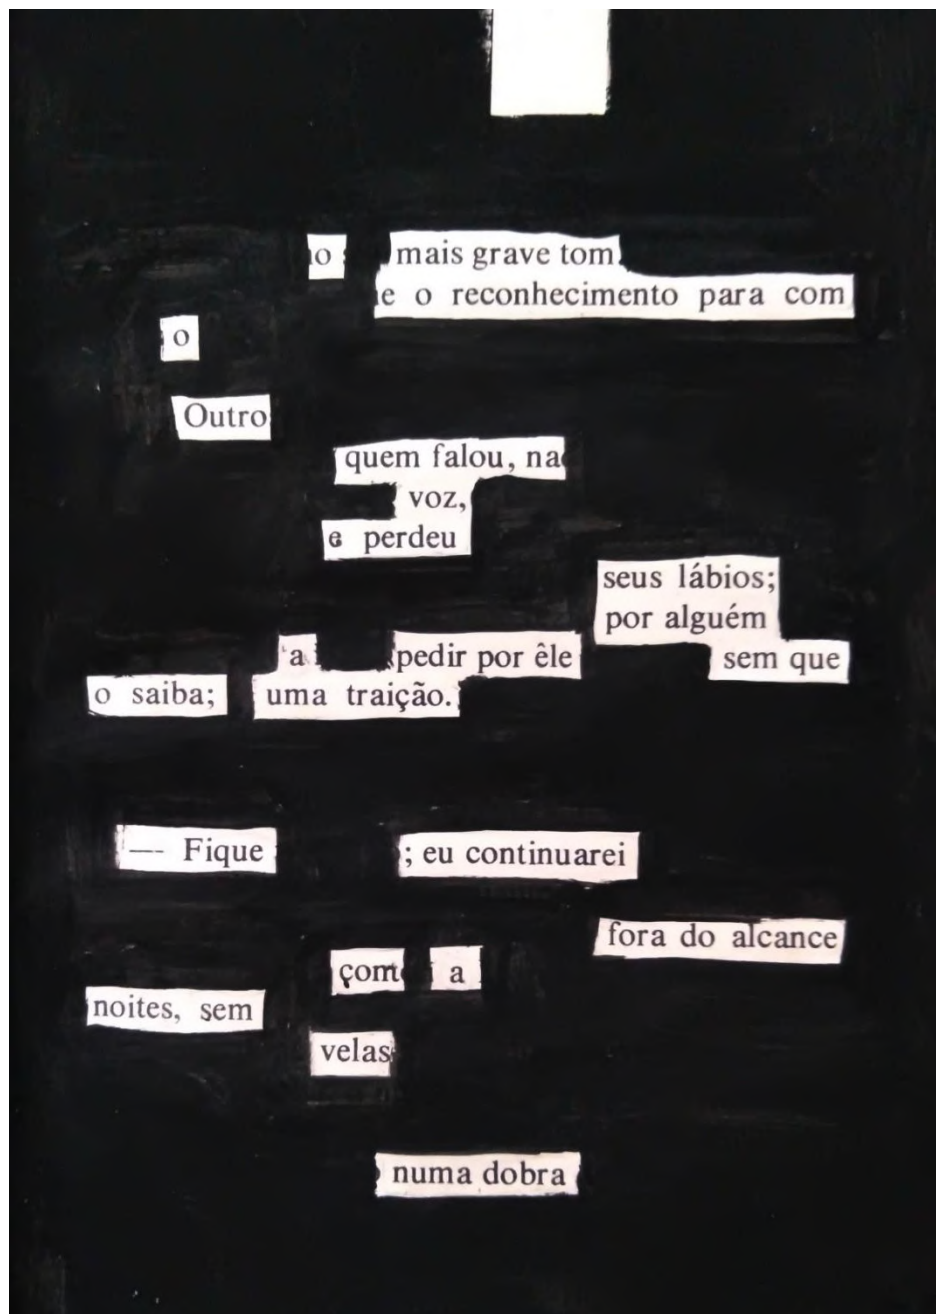 o mais grave tom
e o reconhecimento para com
o
Outro
quem falou, na
voz,
e perdeu
seus lábios;
por alguém
a pedir por êle sem que
o saiba; uma traição.
— Fique ; eu continuarei
fora do alcance
com a
noites, sem
velas
numa dobra